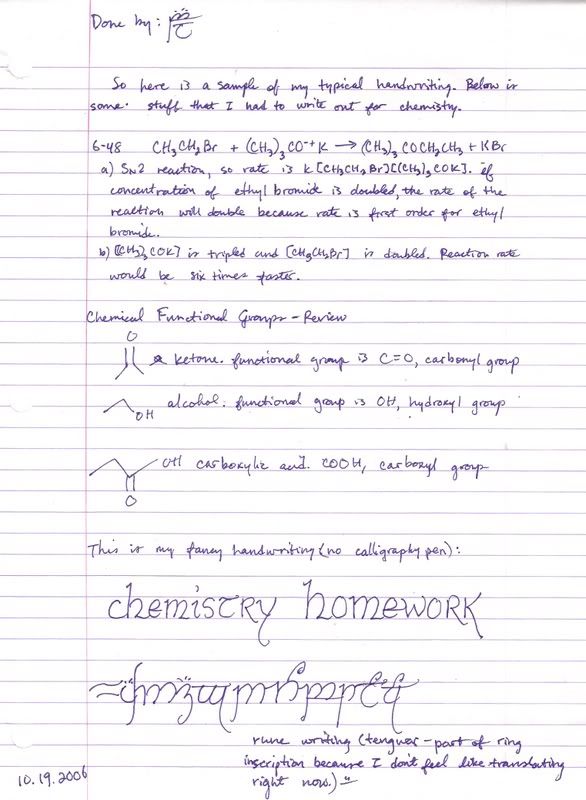 Done by:
So here is a sample of my typical handwriting. Below is
some stuff that I had to write out for chemistry.
6-48 CH3CH2Br + (CH3)3CO-+K → (CH3)3COCH2CH3 + KBr
a) SN2 reaction, so rate is k[CH3CH2Br][(CH3)3COK]. if
concentration of ethyl bromide is doubled, the rate of the
reaction will double because rate is first order for ethyl
bromide.
b) [(CH3)3COK] is tripled and [CH3CH2Br] is doubled. Reaction rate
would be six times faster.
Chemical Functional Groups - Review
O
ketone. functional group is C=O, carbonyl group
OH alcohol. functional group is OH, hydroxyl group
OH carboxylic acid. COOH, carboxyl group
O
This is my fancy handwriting (no calligraphy pen):
chemistry homework
rune writing (tengwar - part of ring
inscription because I don't feel like translating
right now.)
10.19.2006